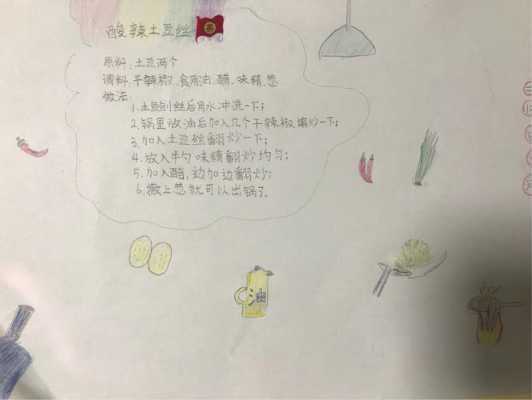 酸辣土豆丝
原料:土豆两个
调料:干辣椒、食用油、醋、味精、葱
做法:
1.土豆削丝后用水冲洗一下;
2.锅里放油后加入几个干辣椒爆炒一下;
3.加入土豆丝翻炒一下;
4.放入半勺味精翻炒均匀;
5.加入醋,边加边翻炒;
6.撒上葱就可以出锅了。
油